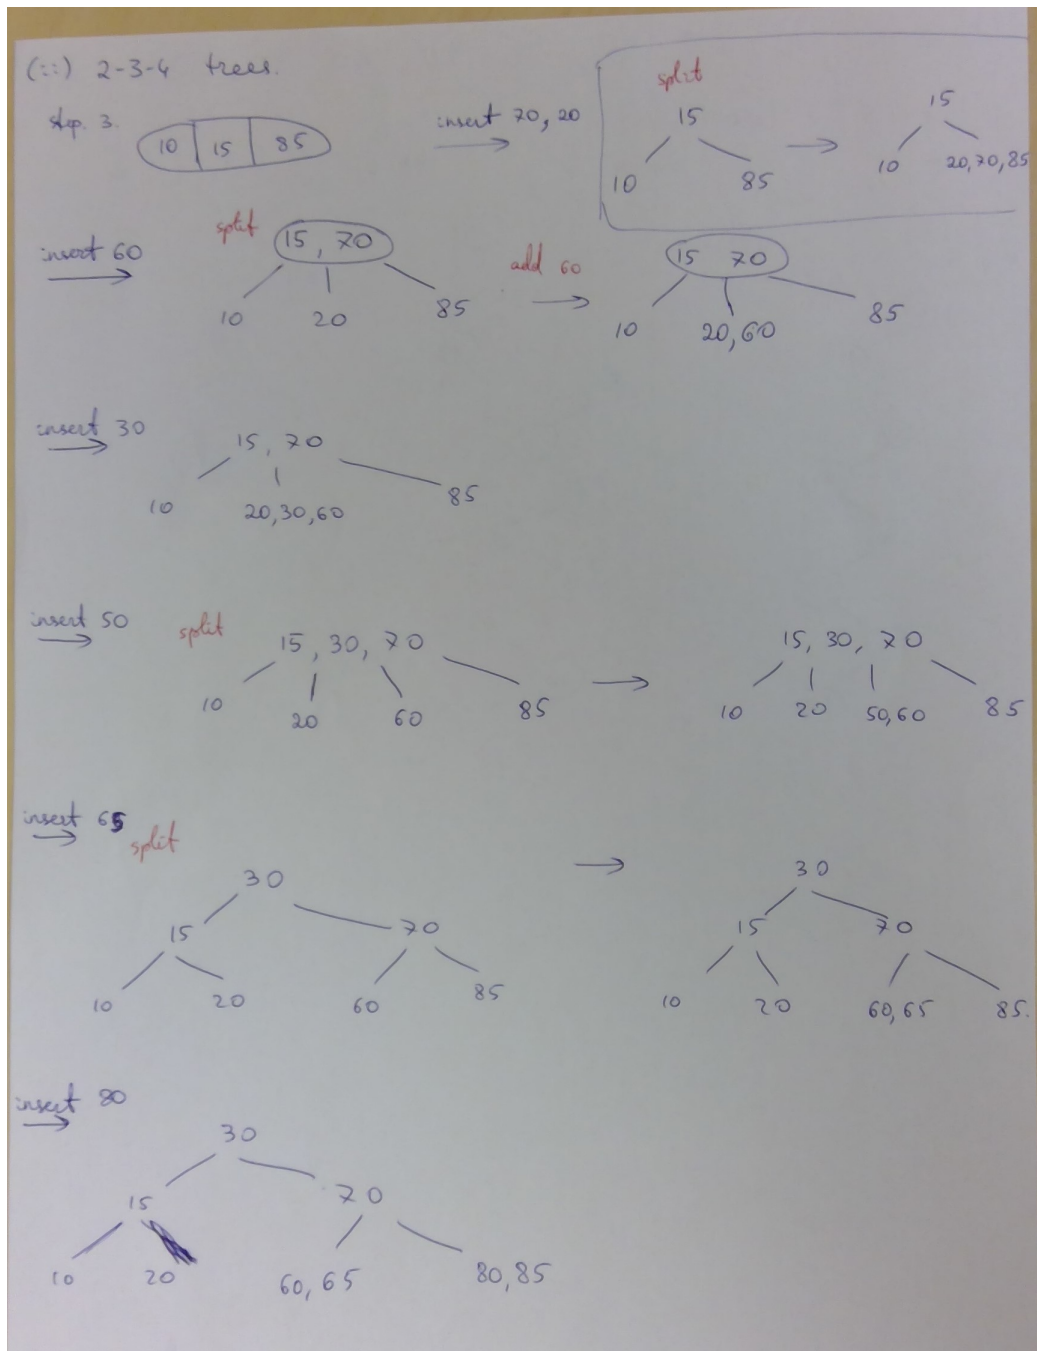 (ii) 2-3-4 trees.
step. 3.
10 15 85
insert 70, 20
split
15
10 85
15
10 20,70,85
insert 60
split
15, 70
10 20 85
add 60
15 70
10 20,60 85
insert 30
15, 70
10 20,30,60 85
insert 50
split
15, 30, 70
10 20 60 85
15, 30, 70
10 20 50,60 85
insert 65
split
30
15 70
10 20 60 85
30
15 70
10 20 60,65 85.
insert 80
30
15 70
10 20 60,65 80,85